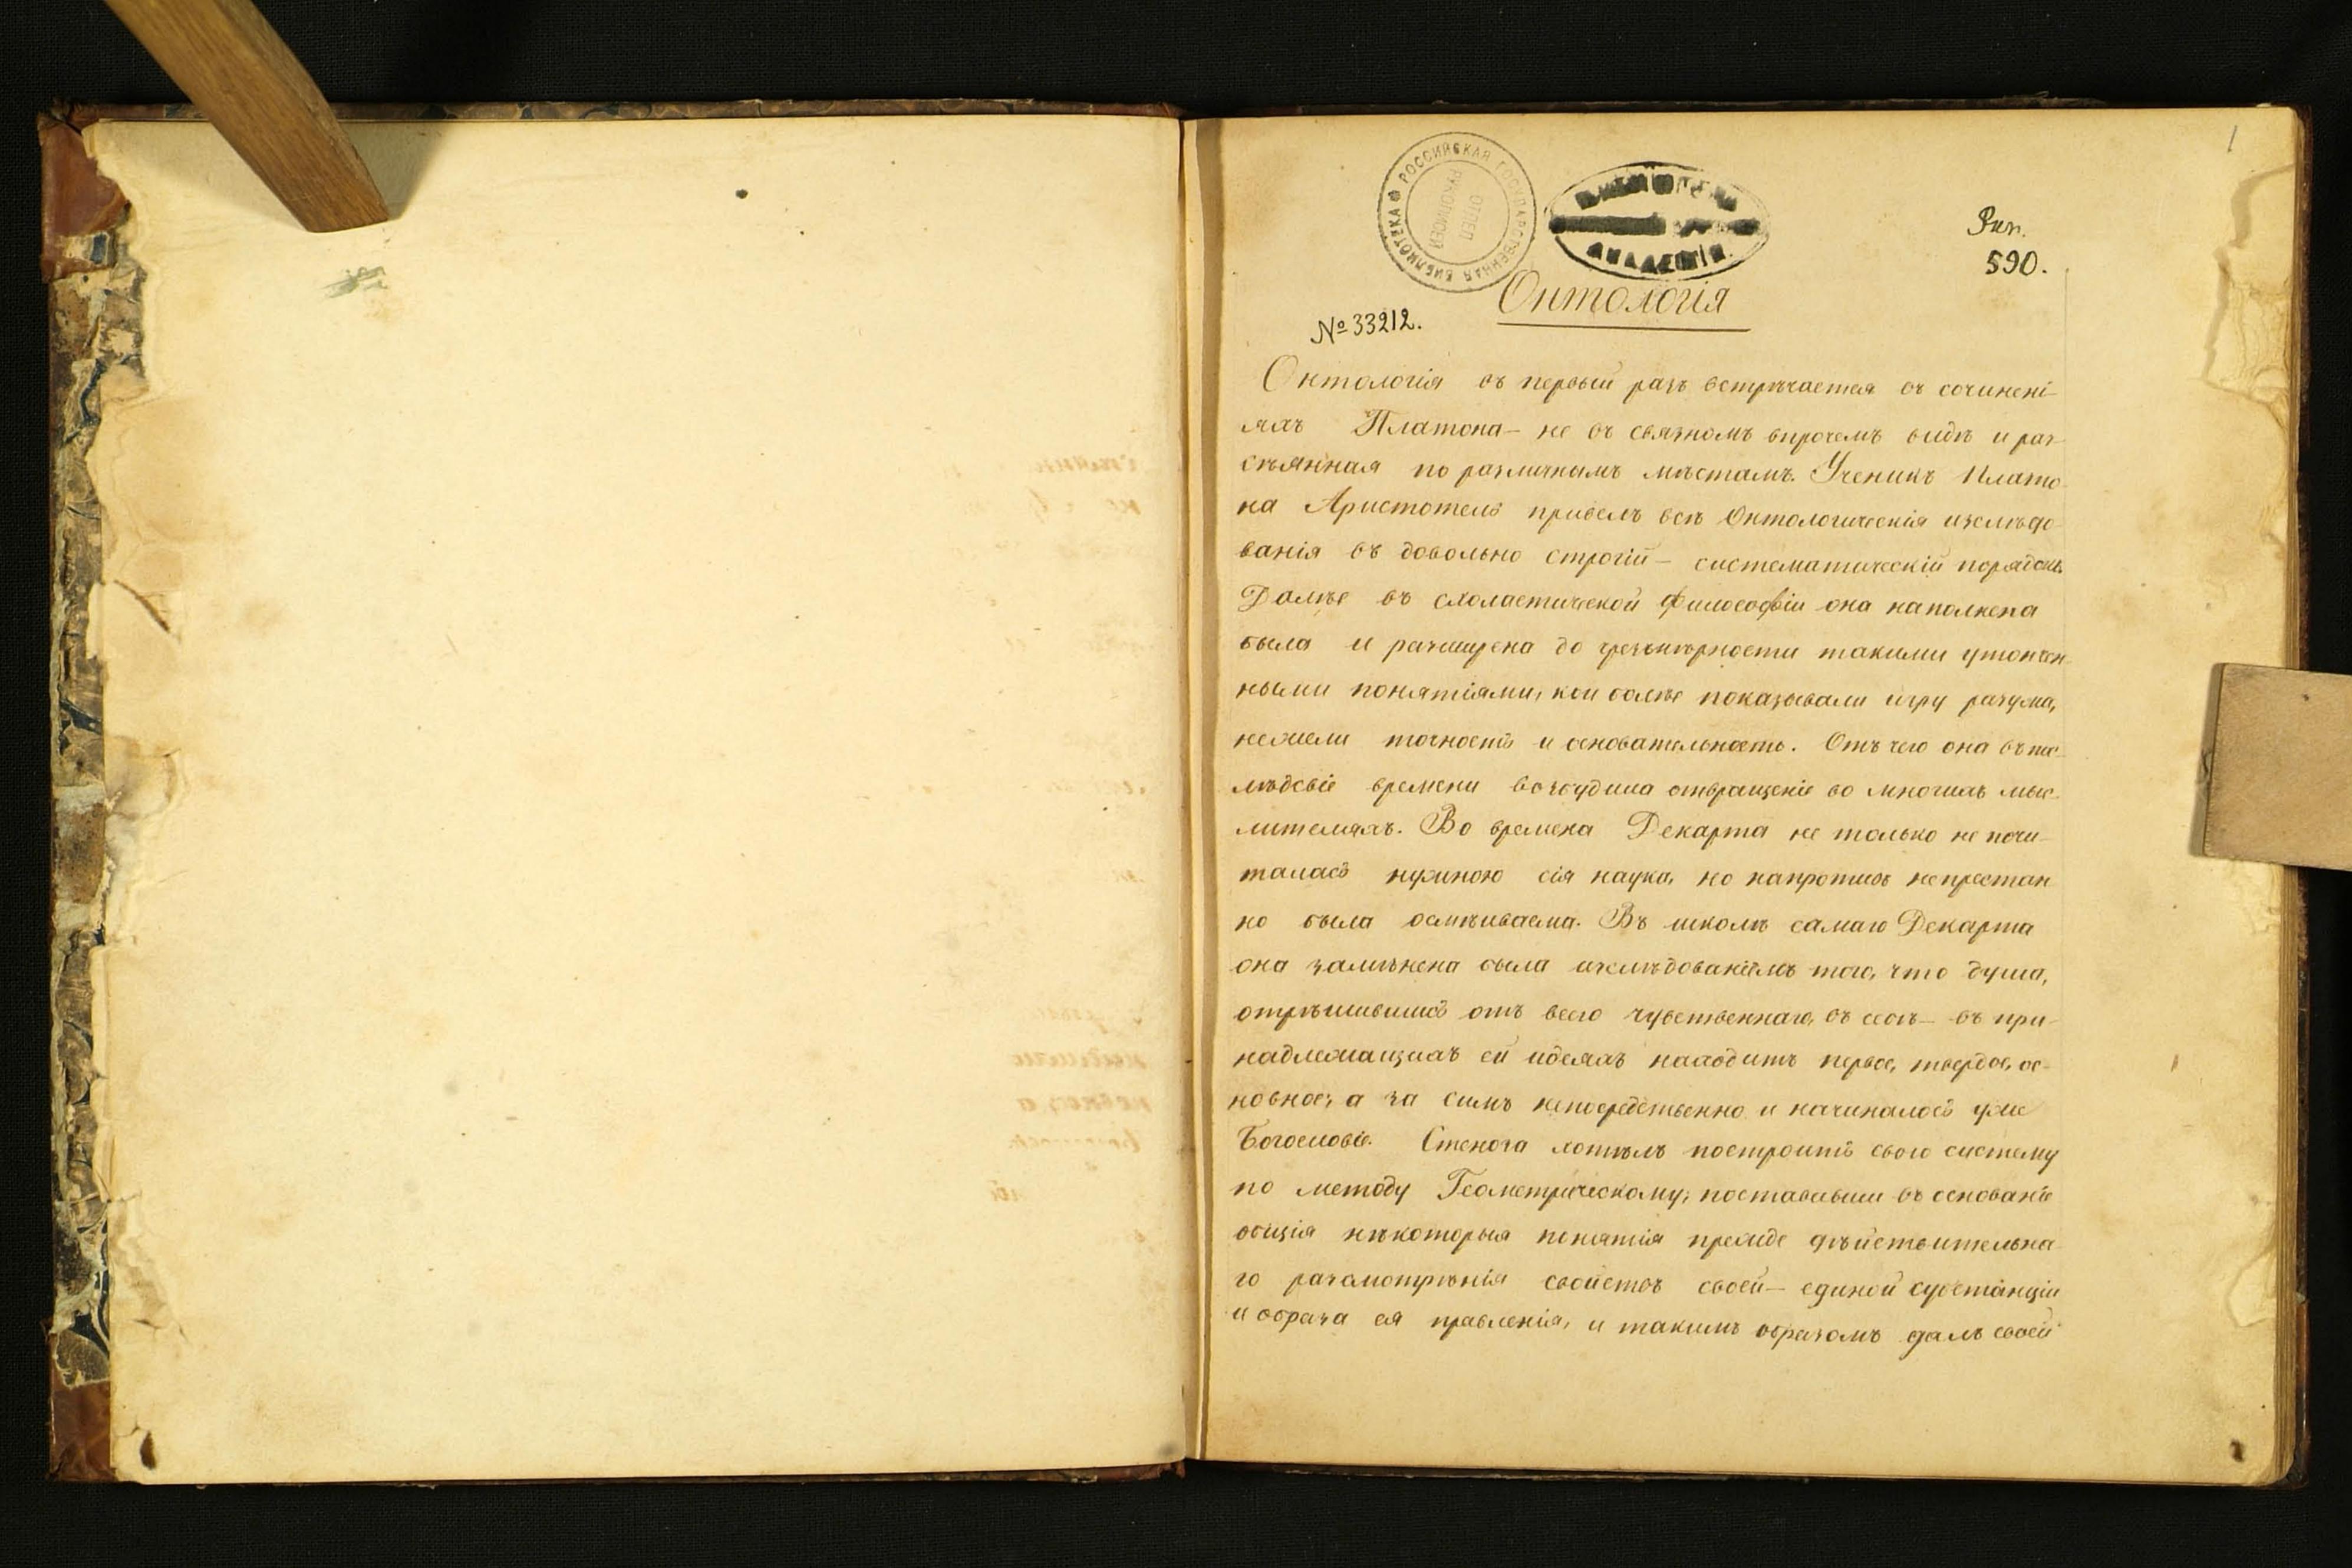 1
РОССИЙСКАЯ ГОСУДАРСТВЕННАЯ БИБЛИОТЕКА
ОТДЕЛ
РУКОПИСЕЙ
АКАДЕМІИ
590.
Онтологія
№ 33212.
Онтологія въ первый разъ встрѣчается въ сочинені-
яхъ Платона – не въ связномъ впрочемъ видѣ и раз-
сѣянная по различнымъ мѣстамъ. Ученикъ Плато-
на Аристотель привелъ всѣ Онтологическія изслѣдо-
ванія въ довольно строгій – систематическій порядокъ.
Далѣе въ схоластической философіи она наполнена
была и разширена до чрезмѣрности такими утончен-
ными понятіями, кои болѣе показывали игру разума,
нежели точность и основательность. Отъ чего она въ пос-
лѣдсвіе времени возбудила отвращеніе во многихъ мыс-
лителяхъ. Во времена Декарта не только не почи-
талась нужною сія наука, но напротивъ непрестан
но была осмѣиваема. Въ школѣ самаго Декарта
она замѣнена была изслѣдованіемъ того, что душа,
отрѣшившись отъ всего чувственнаго, въ себѣ – въ при-
надлежащихъ ей идеяхъ находитъ первое, твердое, ос-
новное; а за симъ непосредственно и начиналось уже
Богословіе. Спеноза хотѣлъ построить свою систему
по методу Геометрическому; поставивши въ основаніе
общія нѣкоторыя понятія прежде дѣйствительна-
го разсмотрѣнія свойствъ своей – единой субстанціи
и образа ея правленія, и такимъ образомъ далъ своей